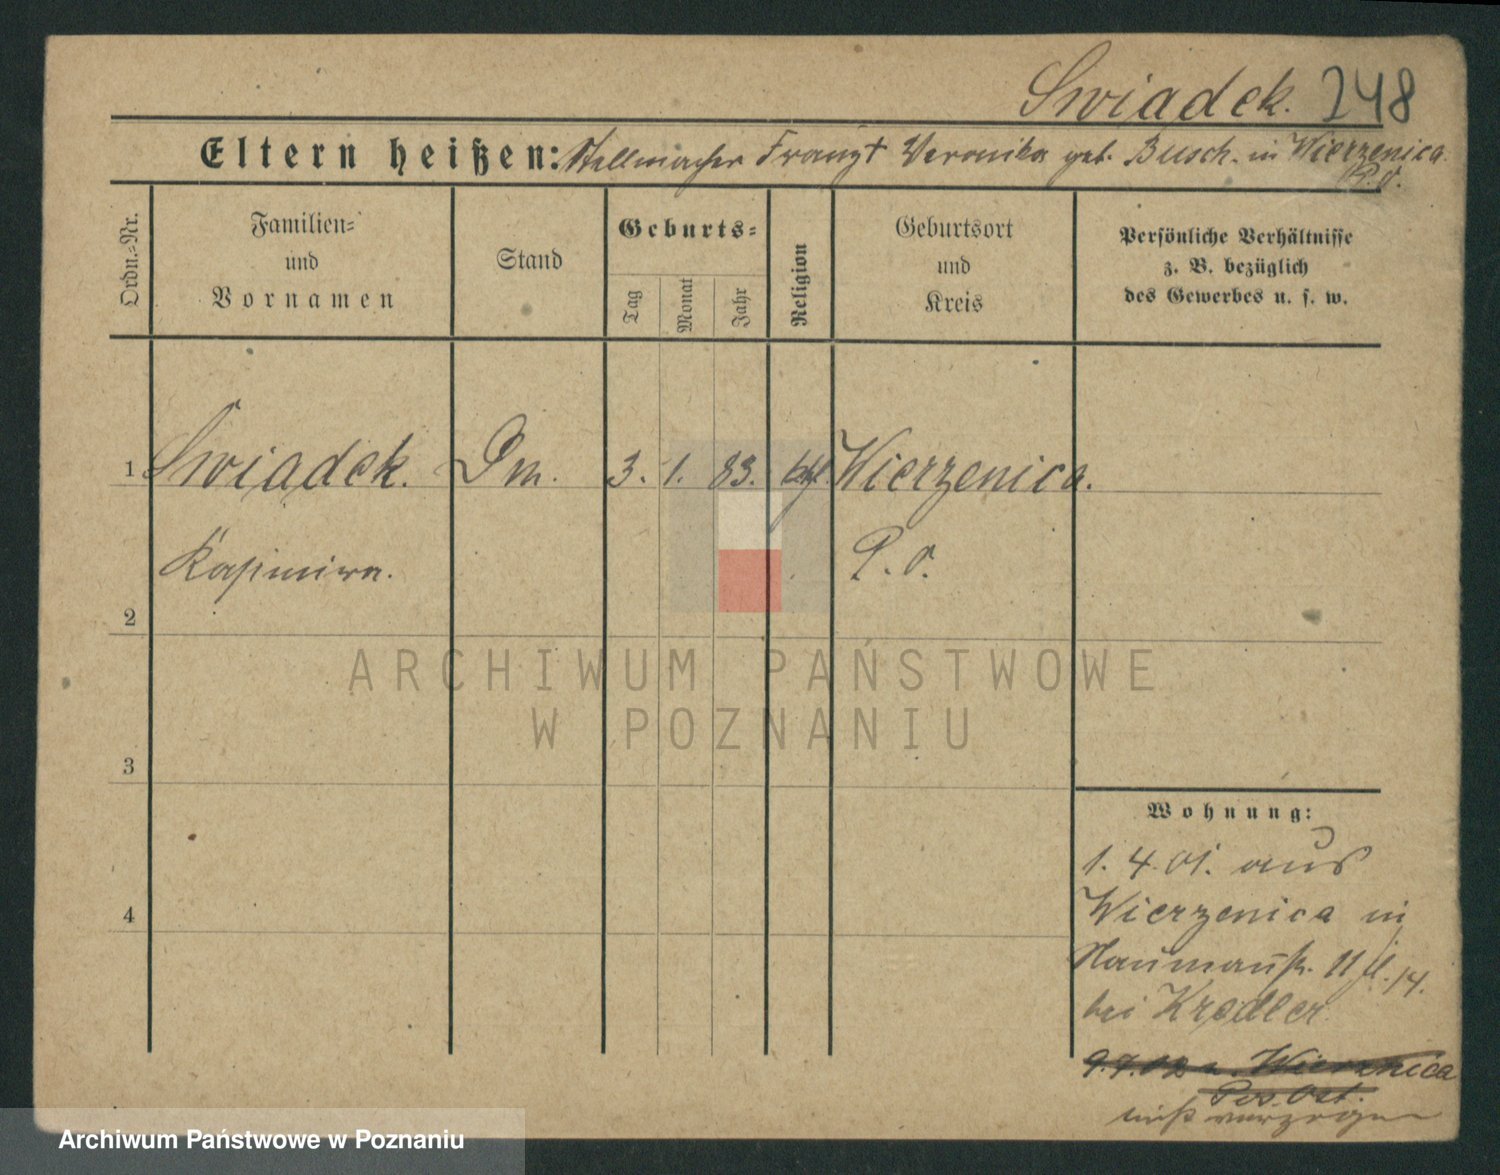 Swiadek. 248
Eltern heißen: Stellmacher Franz † Veronika geb. Busch. in Wierzenica
P. O.
Ordn.-Nr.
Familien-
und
Vornamen
Stand
Geburts-
Tag
Monat
Jahr
Religion
Geburtsort
und
Kreis
Persönliche Verhältnisse
z. B. bezüglich
des Gewerbes u. s. w.
1 Swiadek. Dm. 3. 1. 83. kth. Wierzenica.
Kasimira. P. O.
2
ARCHIWUM PAŃSTWOWE
W POZNANIU
3
Wohnung:
1. 4. 01. aus
Wierzenica in
Naumannstr. 11 14.
bei Kredler.
4
9.7.02 n. Wierzenica
Pos. Ost.
nicht verzogen
Archiwum Państwowe w Poznaniu